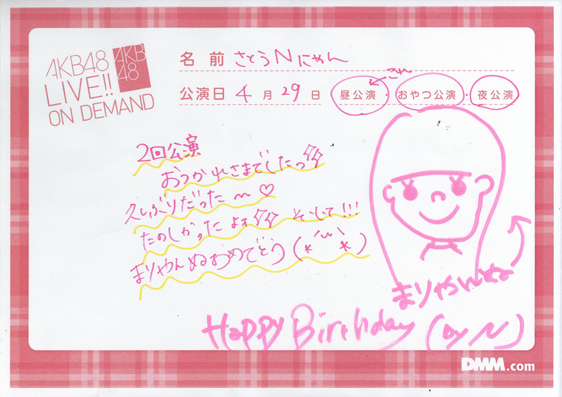 AKB48
LIVE!!
ON DEMAND
AKB
48
名前 さとうNにゃん
公演日 4 月 29 日 昼公演・おやつ公演・夜公演
2回公演
おつかれさまでしたっ
久しぶりだったー♡
たのしかったよぉ そして!!!
まりやんぬおめでとう(*´`*)
まりやんぬ
Happy Birthday (by N)
DMM.com